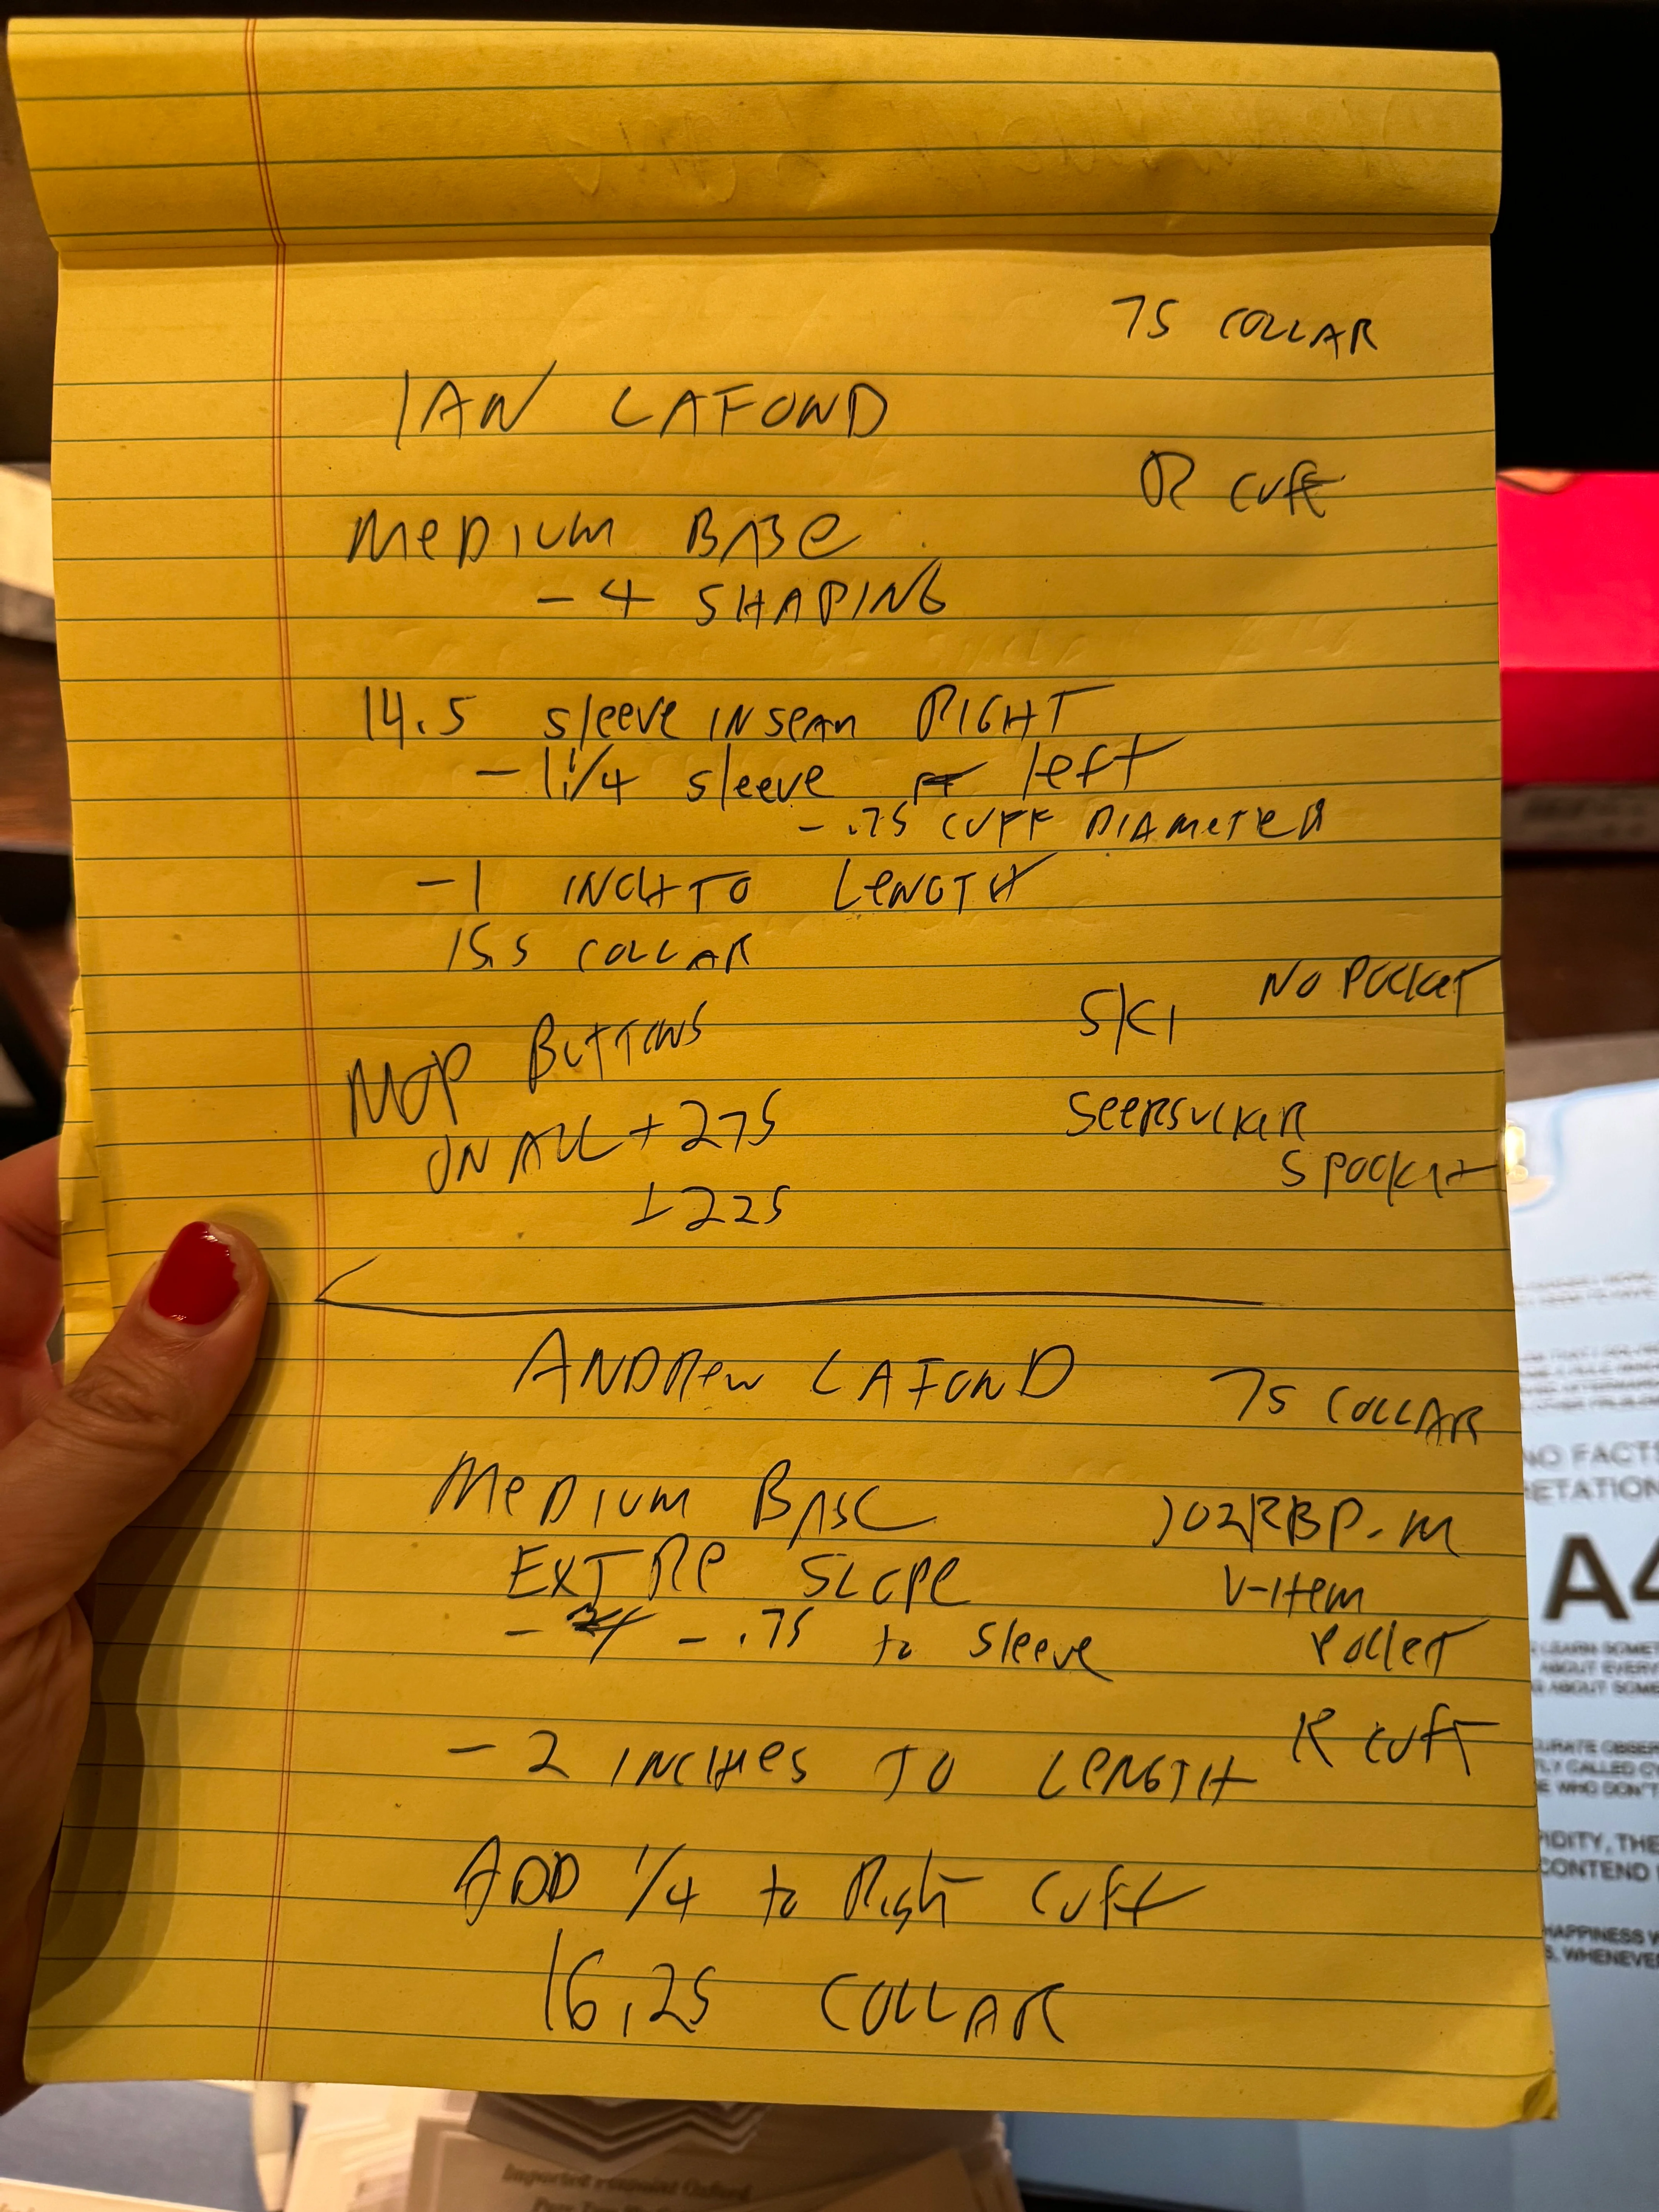 7S COLLAR
IAN LAFOND
R cuff
MEDIUM BASE
- 4 SHAPING
14.5 sleeve INSEAM RIGHT
- 1 1/4 sleeve left
- .75 CUFF DIAMETER
- 1 INCH TO LENGTH
15.5 COLLAR
NO POCKET
SKI
MOP BUTTONS
ON ALL + 275
SEERSUCKER
S POCKET
+ 225
ANDREW LAFOND
7S COLLAR
MEDIUM BASE
102RBP-M
EXTRE SLOPE
V-ITEM
- .75 to sleeve
POCKET
R cuff
- 2 INCHES TO LENGTH
ADD 1/4 to Right cuff
16.25 COLLAR
NO FACTS
A4
LEARN SOME
ABOUT EVERY
ABOUT SOME
Imported Pinpoint Oxford